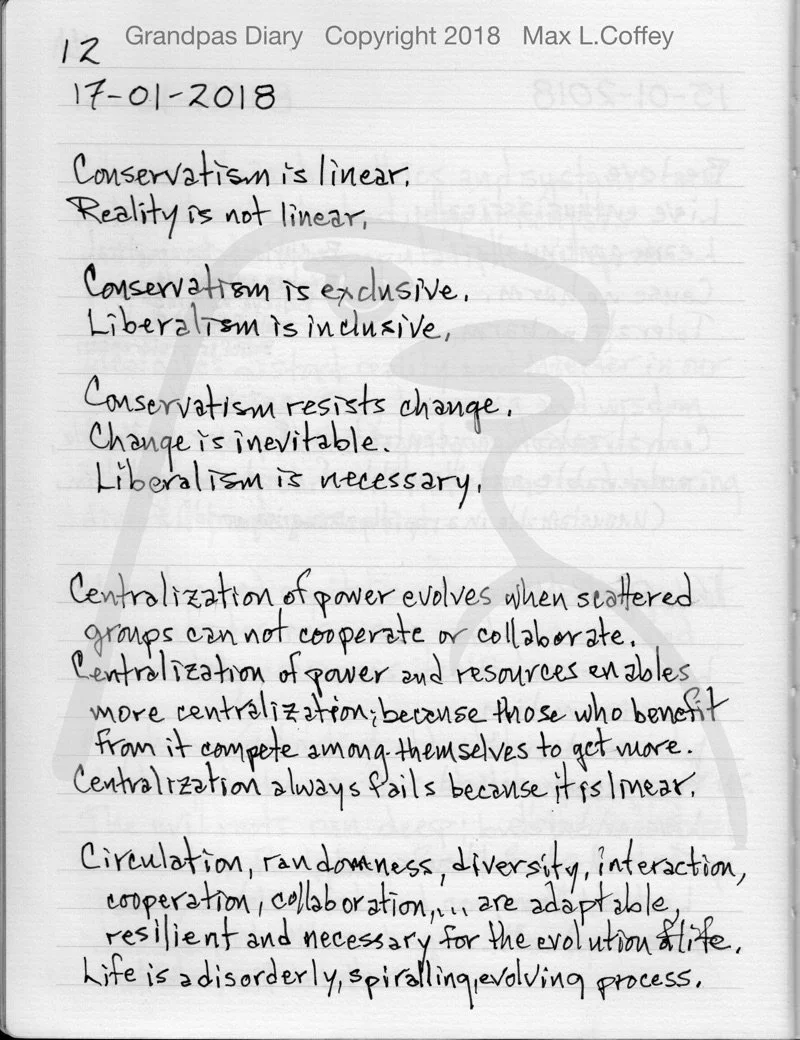 Grandpas Diary Copyright 2018 Max L.Coffey
12
17-01-2018
Conservatism is linear.
Reality is not linear.
Conservatism is exclusive.
Liberalism is inclusive.
Conservatism resists change.
Change is inevitable.
Liberalism is necessary.
Centralization of power evolves when scattered
groups can not cooperate or collaborate.
Centralization of power and resources enables
more centralization; because those who benefit
from it compete among themselves to get more.
Centralization always fails because it is linear.
Circulation, randomness, diversity, interaction,
cooperation, collaboration,... are adaptable,
resilient and necessary for the evolution of life.
Life is a disorderly, spiralling, evolving process.